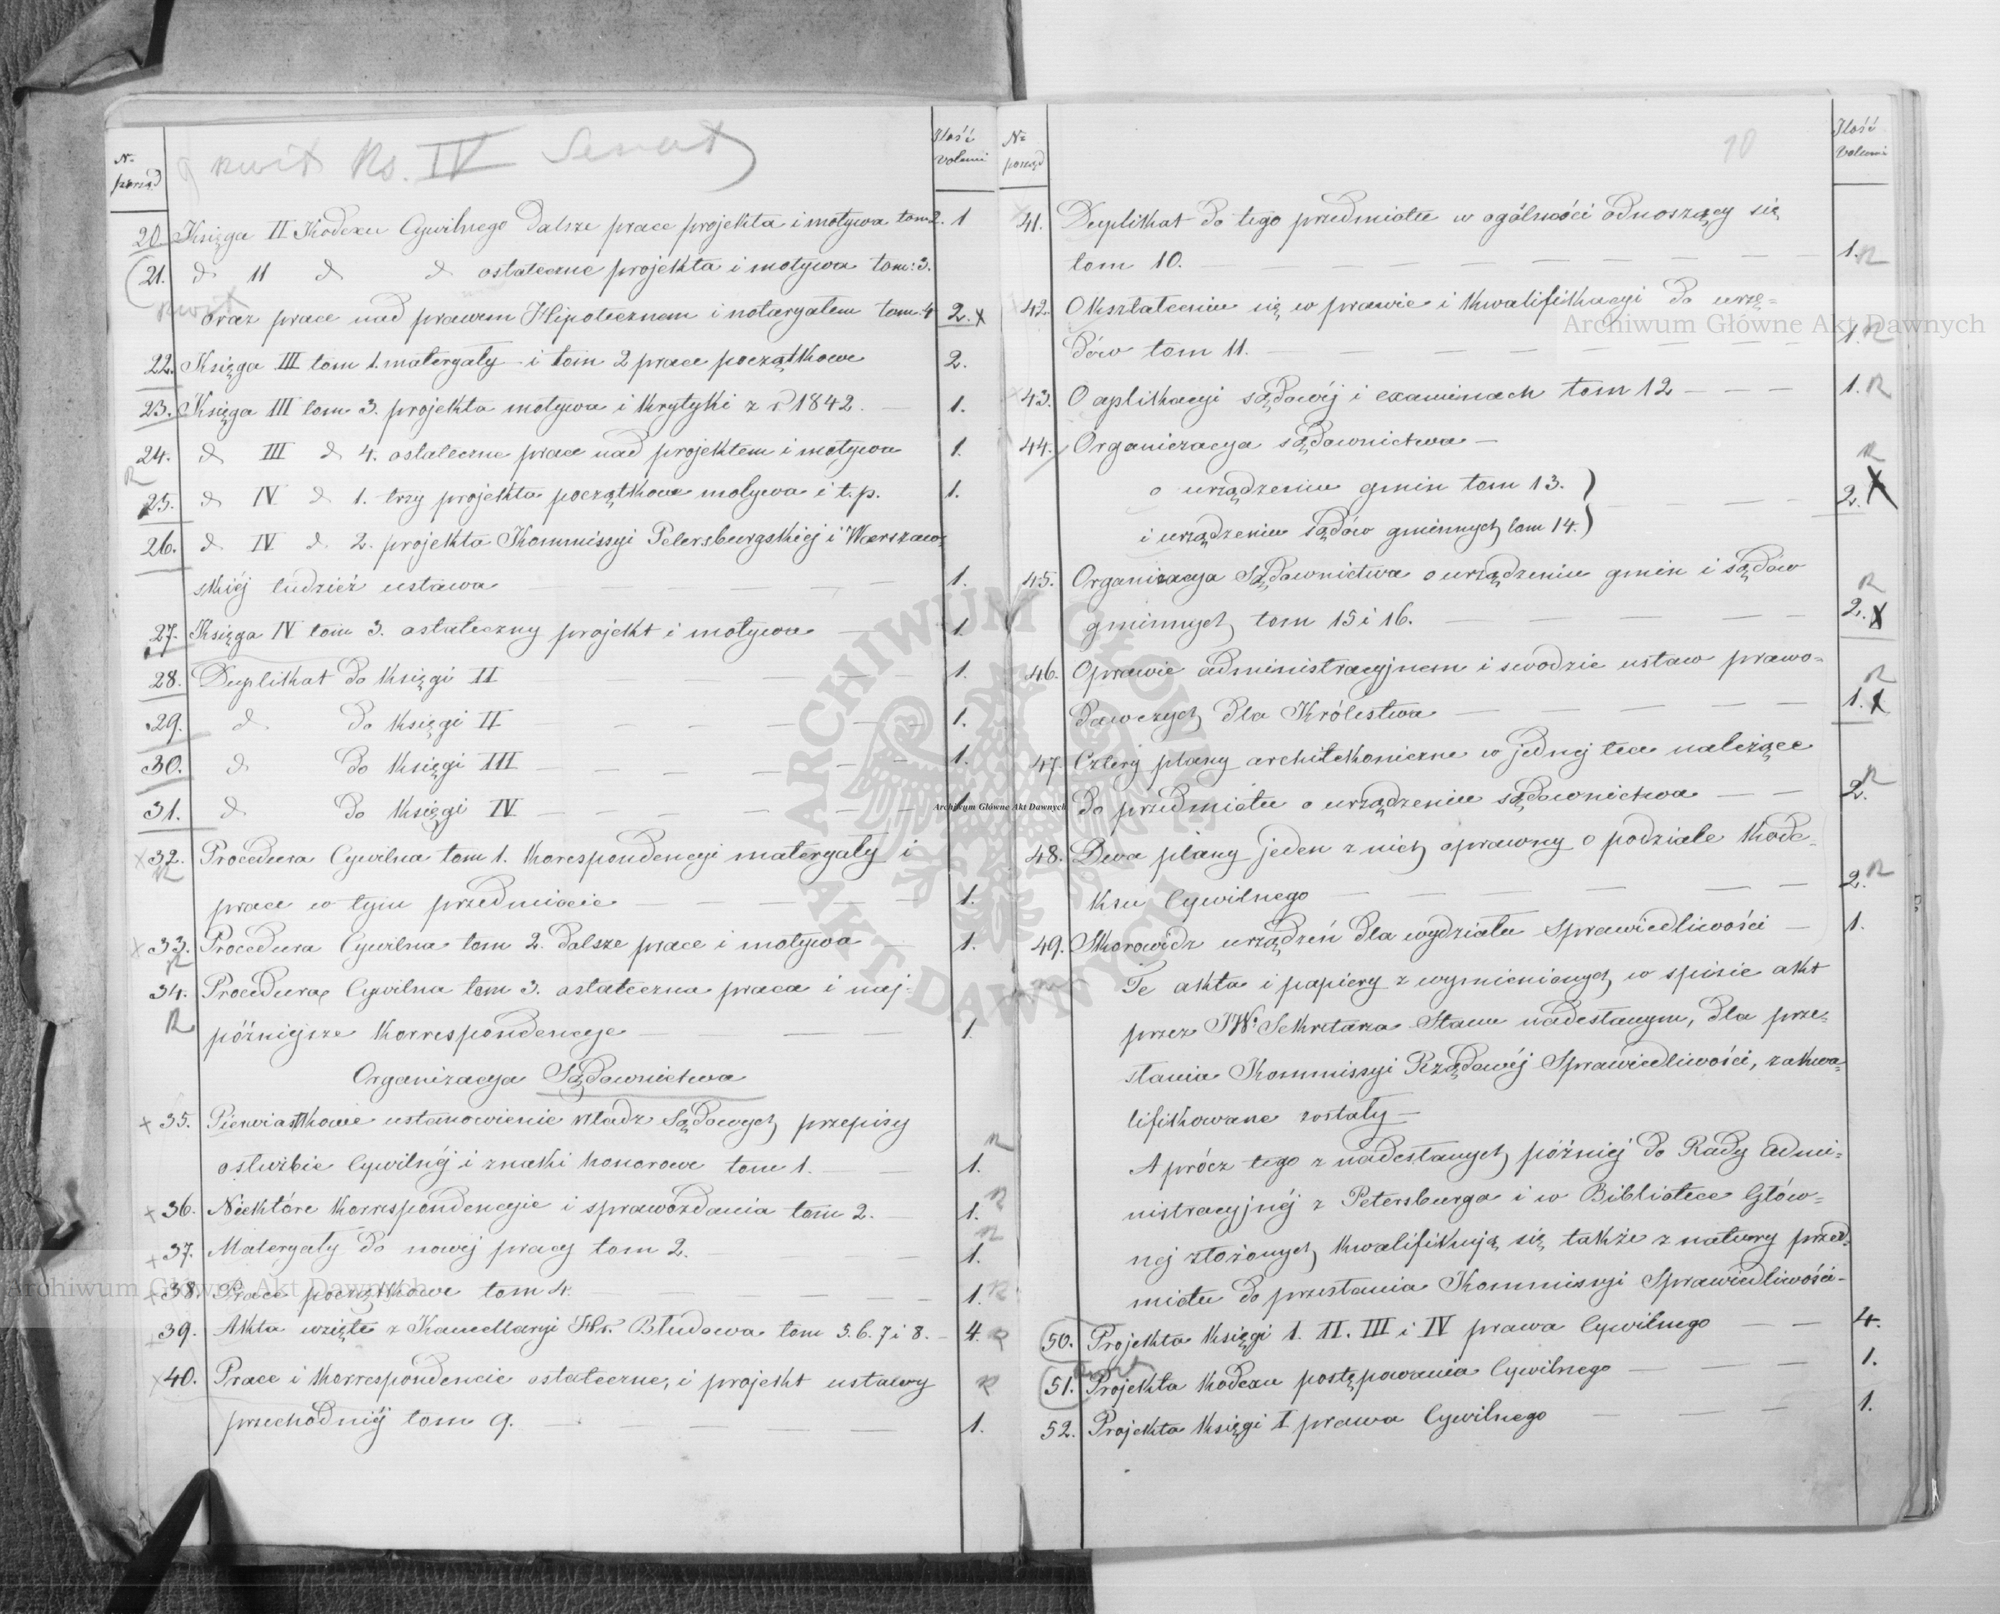 kwit Ks. IV Senat
N=
porząd
Ilość
Volumi
20. Księga II Kodexu Cywilnego dalsze prace projekta i motywa tom 2. 1
21. d II d d ostateczne projekta i motywa tom: 3.
kwit
oraz prace nad prawem Hipotecznem i notaryatem tom. 4 2. x
22. Księga III tom 1. materyały i tom 2 prace początkowe 2.
23. Księga III tom 3. projekta motywa i krytyki z r 1842. 1.
24. d III d 4. ostateczne prace nad projektem i motywa 1.
R
25. d IV d 1. trzy projekta początkowe motywa i t. p. 1.
26. d IV d. 2. projekta Kommissyi Petersburgskiej i Warszaw-
skiéj tudzież ustawa 1.
27. Księga IV tom 3. ostateczny projekt i motywa 1
28. Duplikat do księgi II 1.
29. d do księgi II 1.
30. d do księgi III 1.
31. d do księgi IV 1
x 32. Procedura Cywilna tom 1. korespondencyi materyały i
R
prace w tym przedmiocie 1.
x 33. Procedura Cywilna tom 2. dalsze prace i motywa 1.
R
34. Procedura Cywilna tom 3. ostateczna praca i naj-
R
późniejsze korrespondencye 1.
Organizacya Sądownictwa
+ 35. Pierwiastkowe ustanowienie władz Sądowych przepisy
o służbie Cywilnéj i znaki honorowe tom 1. 1. R
+ 36. Niektóre korrespondencyie i sprawozdania tom 2. 1. R
+ 37. Materyały do nowej pracy tom 2. 1. R
+ 38. Prace początkowe tom 4. 1. R
+ 39. Akta wzięte z Kancellaryi Hr. Błudowa tom 5. 6. 7 i 8. 4. R
x 40. Prace i korrespondencie ostateczne, i projekt ustawy R
przechodniéj tom 9. 1.
N=
porząd
10
Ilość
Volumi
41. Duplikat do tego przedmiotu w ogólności odnoszący się
tom 10. 1. R
42. O kształceniu się w prawie i kwalifikacyi do urzę-
dów tom 11. 1. R
43. O aplikacyi sądowéj i examinach tom 12 1. R
44. Organizacya sądownictwa R
o urządzeniu gmin tom 13. } 2. x
i urządzeniu sądów gminnych tom 14. }
45. Organizacya Sądownictwa o urządzeniu gmin i sądów R
gminnych tom 15 i 16. 2. x
46. O prawie administracyjnem i swodzie ustaw prawo- R
dawczych dla Królestwa 1. x
47. Cztery plany architekoniczne w jednej tece należące
do przedmiotu o urządzeniu sądownictwa 2. R
48. Dwa plany jeden z nich oprawny o podziale Kode-
ksu Cywilnego 2. R
49. Skorowidz urządzeń dla wydziału Sprawiedliwości 1.
Te akta i papiery z wymienionych w spisie akt
przez JW. Sekretarza Stanu nadesłanym, dla prze-
słania Kommissyi Rządowéj Sprawiedliwości, zakwa-
lifikowane zostały
A prócz tego z nadesłanych później do Rady Admi-
nistracyjnéj z Petersburga i w Bibliotece Głów-
nej złożonych kwalifikują się także z natury przed-
miotu do przesłania Kommissyi Sprawiedliwości
50. Projekta księgi I. II. III i IV prawa Cywilnego 4.
51. Projekta kodexu postępowania Cywilnego 1.
52. Projekta księgi I prawa Cywilnego 1.
Archiwum Główne Akt Dawnych
Archiwum Główne Akt Dawnych
Archiwum Główne Akt Dawnych
ARCHIWUM GŁÓWNE AKT DAWNYCH